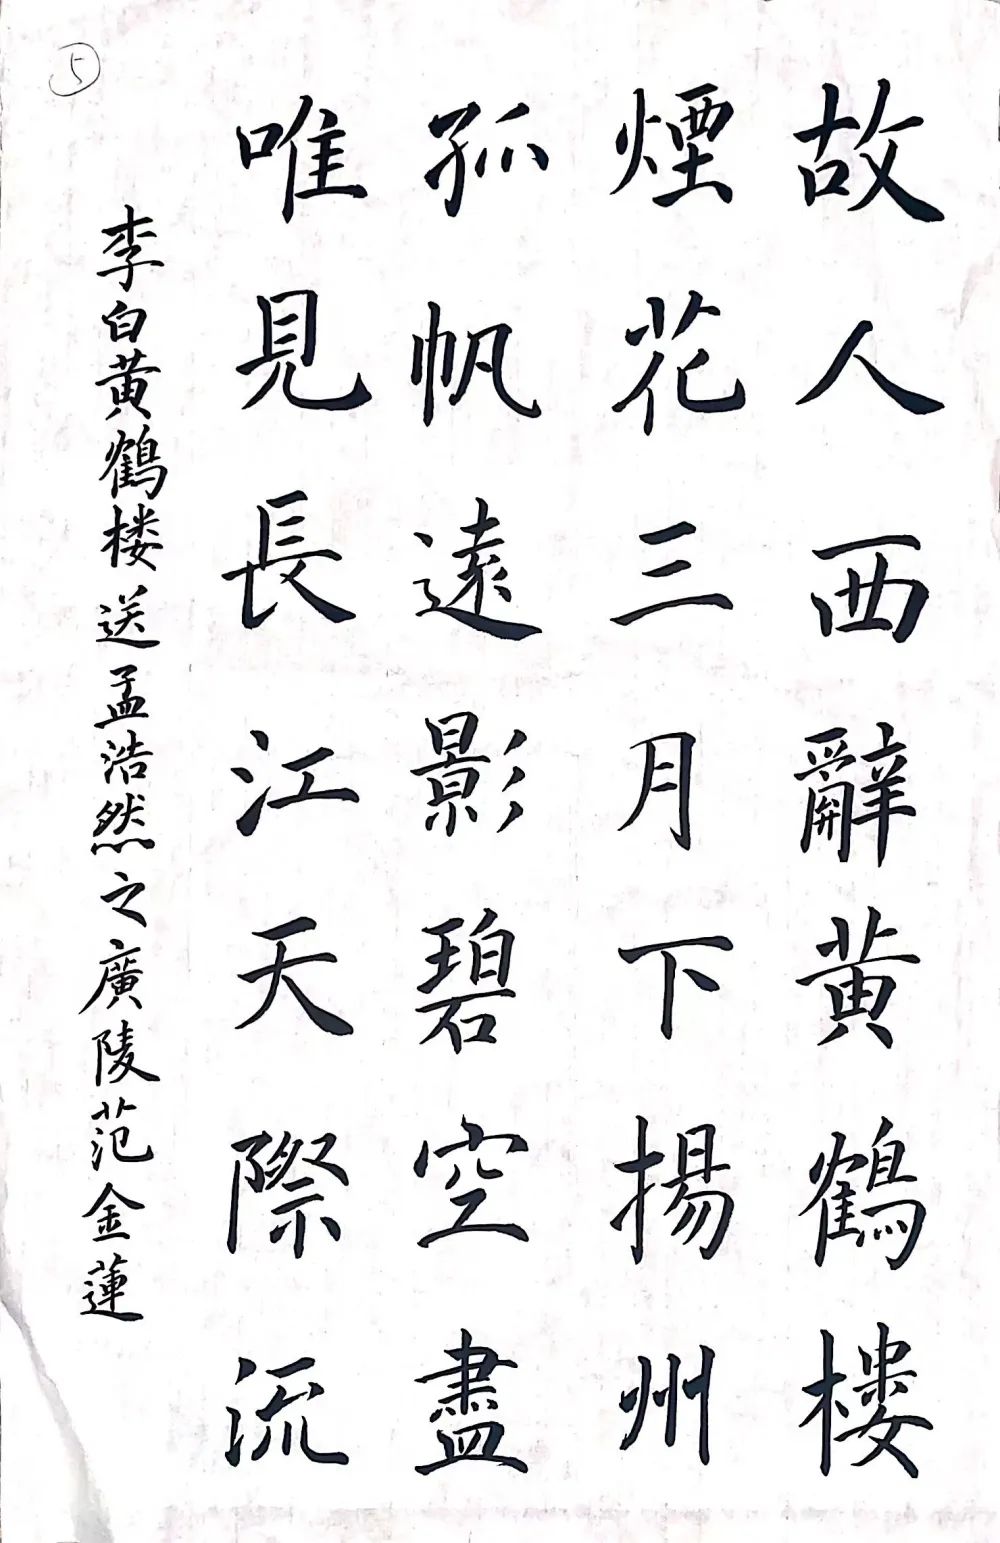 故人西辭黄鶴樓
煙花三月下揚州
孤帆遠影碧空盡
唯見長江天際流
李白黄鶴楼送孟浩然之廣陵范金蓮
5